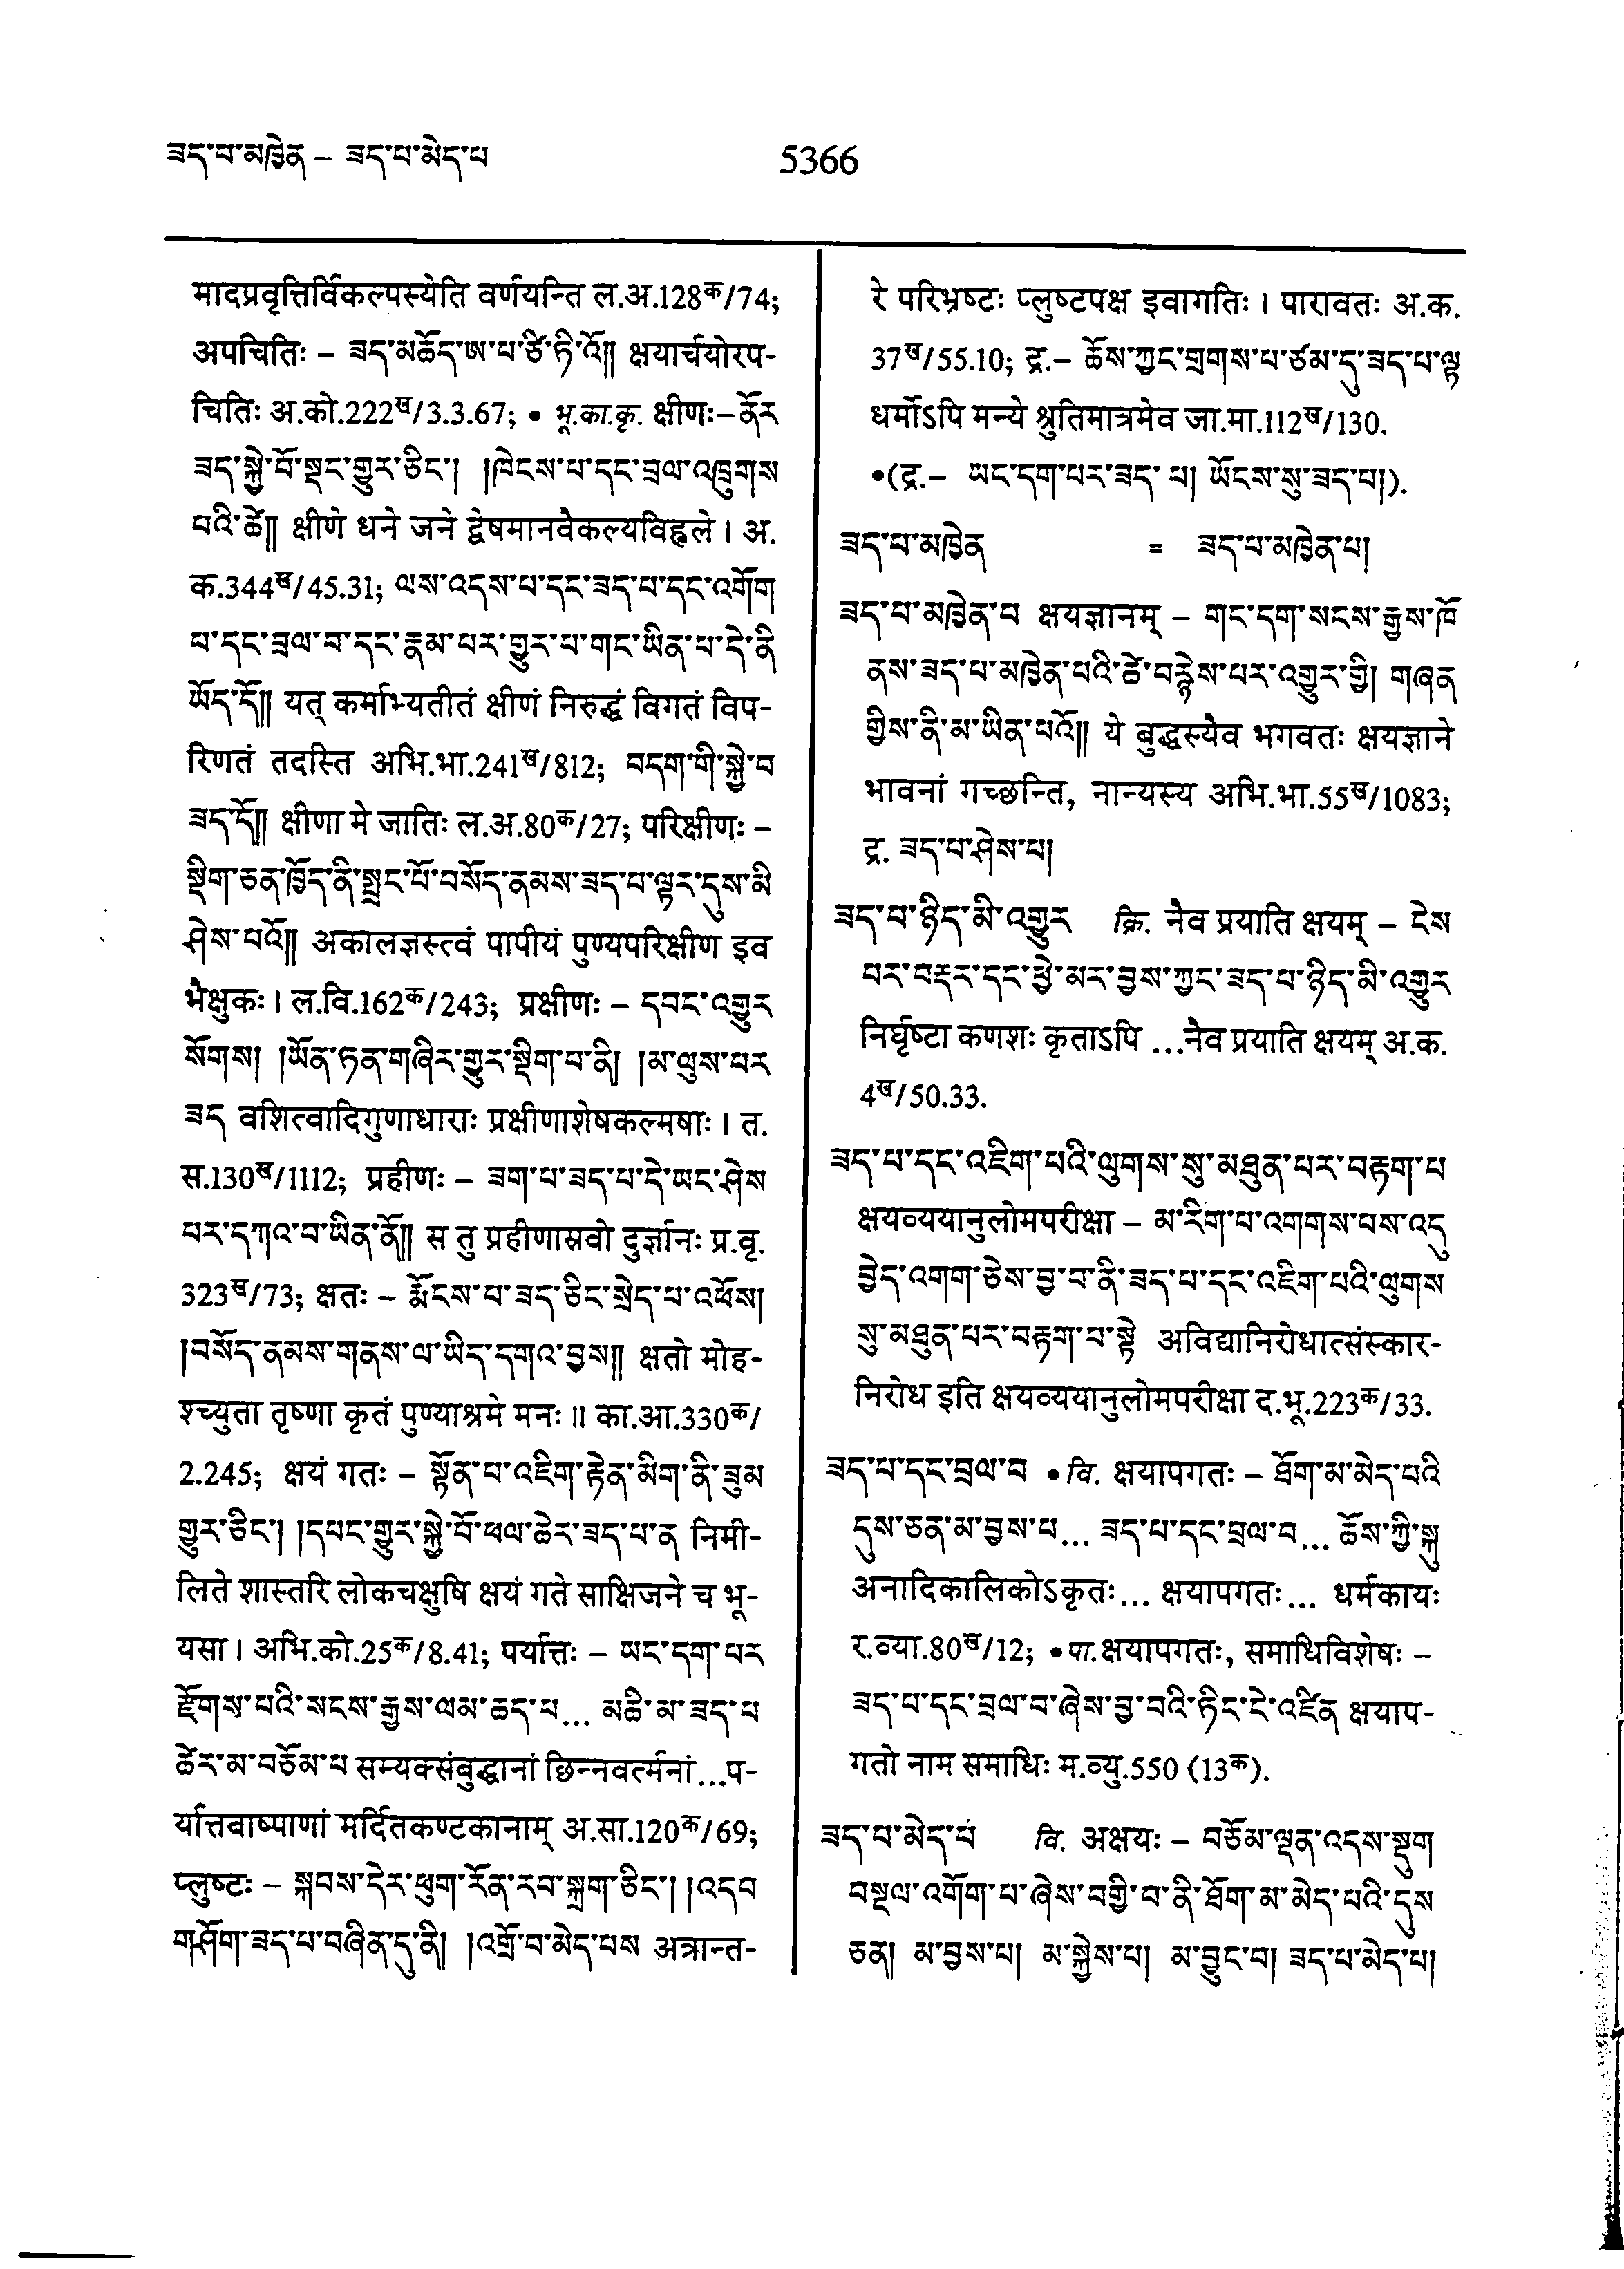 ཟད་པ་མཁྱེན – ཟད་པ་མེད་པ
5366
मादप्रवृत्तिर्विकल्पस्येति वर्णयन्ति ल.अ.128क/74;
अपचितिः – ཟད་མཆོད་ཨ་པ་ཙི་ཏི་འོ།། क्षयार्चयोरप-
चितिः अ.को.222ख/3.3.67; • भू.का.कृ. क्षीणः–ནོར
ཟད་སྐྱེ་བོ་སྡང་གྱུར་ཅིང་། །ཁེངས་པ་དང་བྲལ་འཁྲུགས
པའི་ཚེ།། क्षीणे धने जने द्वेषमानवैकल्यविह्वले । अ.
क.344ख/45.31; ལས་འདས་པ་དང་ཟད་པ་དང་འགོག
པ་དང་བྲལ་བ་དང་རྣམ་པར་གྱུར་པ་གང་ཡིན་པ་དེ་ནི
ཡོད་དོ།། यत् कर्माभ्यतीतं क्षीणं निरुद्धं विगतं विप-
रिणतं तदस्ति अभि.भा.241ख/812; བདག་གི་སྐྱེ་བ
ཟད་དོ།། क्षीणा मे जातिः ल.अ.80क/27; परिक्षीणः –
སྡིག་ཅན་ཁྱོད་ནི་སྤྲང་པོ་བསོད་ནམས་ཟད་པ་ལྟར་དུས་མི
ཤེས་པའོ།། अकालज्ञस्त्वं पापीयं पुण्यपरिक्षीण इव
भैक्षुकः । ल.वि.162क/243; प्रक्षीणः – དབང་འགྱུར
སོགས། །ཡོན་ཏན་གཞིར་གྱུར་སྡིག་པ་ནི། །མ་ལུས་པར
ཟད वशित्वादिगुणाधाराः प्रक्षीणाशेषकल्मषाः । त.
स.130ख/1112; प्रहीणः – ཟག་པ་ཟད་པ་དེ་ཡང་ཤེས
པར་དཀའ་བ་ཡིན་ནོ།། स तु प्रहीणास्रवो दुर्ज्ञानः प्र.वृ.
323ख/73; क्षतः – རྨོངས་པ་ཟད་ཅིང་སྲེད་པ་འཕོས།
།བསོད་ནམས་གནས་ལ་ཡིད་དགའ་བྱས།། क्षतो मोह-
श्च्युता तृष्णा कृतं पुण्याश्रमे मनः ॥ का.आ.330क/
2.245; क्षयं गतः – སྟོན་པ་འཇིག་རྟེན་མིག་ནི་ཟུམ
གྱུར་ཅིང་། །དཔང་གྱུར་སྐྱེ་བོ་ཕལ་ཆེར་ཟད་པ་ན निमी-
लिते शास्तरि लोकचक्षुषि क्षयं गते साक्षिजने च भू-
यसा । अभि.को.25क/8.41; पर्यात्तः – ཡང་དག་པར
རྫོགས་པའི་སངས་རྒྱས་ལམ་ཆད་པ... མཆི་མ་ཟད་པ
ཚེར་མ་བཅོམ་པ सम्यक्संबुद्धानां छिन्नवर्त्मनां...प-
र्यात्तवाष्पाणां मर्दितकण्टकानाम् अ.सा.120क/69;
प्लुष्टः – སྐབས་དེར་ཕུག་རོན་རབ་སྐྲག་ཅིང་། །འདབ
གཤོག་ཟད་པ་བཞིན་དུ་ནི། །འགྲོ་བ་མེད་པས अत्रान्त-
रे परिभ्रष्टः प्लुष्टपक्ष इवागतिः । पारावतः अ.क.
37ख/55.10; द्र.– ཆོས་ཀྱང་གྲགས་པ་ཙམ་དུ་ཟད་པ་ལྟ
धर्मोऽपि मन्ये श्रुतिमात्रमेव जा.मा.112ख/130.
•(द्र.– ཡང་དག་པར་ཟད་ པ། ཡོངས་སུ་ཟད་པ།).
ཟད་པ་མཁྱེན = ཟད་པ་མཁྱེན་པ།
ཟད་པ་མཁྱེན་པ क्षयज्ञानम् – གང་དག་སངས་རྒྱས་ཁོ
ནས་ཟད་པ་མཁྱེན་པའི་ཚེ་བརྙེས་པར་འགྱུར་གྱི། གཞན
གྱིས་ནི་མ་ཡིན་པའོ།། ये बुद्धस्यैव भगवतः क्षयज्ञाने
भावनां गच्छन्ति, नान्यस्य अभि.भा.55ख/1083;
द्र. ཟད་པ་ཤེས་པ།
ཟད་པ་ཉིད་མི་འགྱུར क्रि. नैव प्रयाति क्षयम् – ངེས
པར་བརྡར་དང་ཕྱེ་མར་བྱས་ཀྱང་ཟད་པ་ཉིད་མི་འགྱུར
निर्घृष्टा कणशः कृताऽपि ...नैव प्रयाति क्षयम् अ.क.
4ख/50.33.
ཟད་པ་དང་འཇིག་པའི་ལུགས་སུ་མཐུན་པར་བརྟག་པ
क्षयव्ययानुलोमपरीक्षा – མ་རིག་པ་འགགས་པས་འདུ
བྱེད་འགག་ཅེས་བྱ་བ་ནི་ཟད་པ་དང་འཇིག་པའི་ལུགས
སུ་མཐུན་པར་བརྟག་པ་སྟེ अविद्यानिरोधात्संस्कार-
निरोध इति क्षयव्ययानुलोमपरीक्षा द.भू.223क/33.
ཟད་པ་དང་བྲལ་བ •वि. क्षयापगतः – ཐོག་མ་མེད་པའི
དུས་ཅན་མ་བྱས་པ... ཟད་པ་དང་བྲལ་བ... ཆོས་ཀྱི་སྐུ
अनादिकालिकोऽकृतः... क्षयापगतः... धर्मकायः
र.व्या.80ख/12; •पा.क्षयापगतः, समाधिविशेषः –
ཟད་པ་དང་བྲལ་བ་ཞེས་བྱ་བའི་ཏིང་ངེ་འཛིན क्षयाप-
गतो नाम समाधिः म.व्यु.550 (13क).
ཟད་པ་མེད་པ वि. अक्षयः – བཅོམ་ལྡན་འདས་སྡུག
བསྔལ་འགོག་པ་ཞེས་བགྱི་བ་ནི་ཐོག་མ་མེད་པའི་དུས
ཅན། མ་བྱས་པ། མ་སྐྱེས་པ། མ་བྱུང་བ། ཟད་པ་མེད་པ།